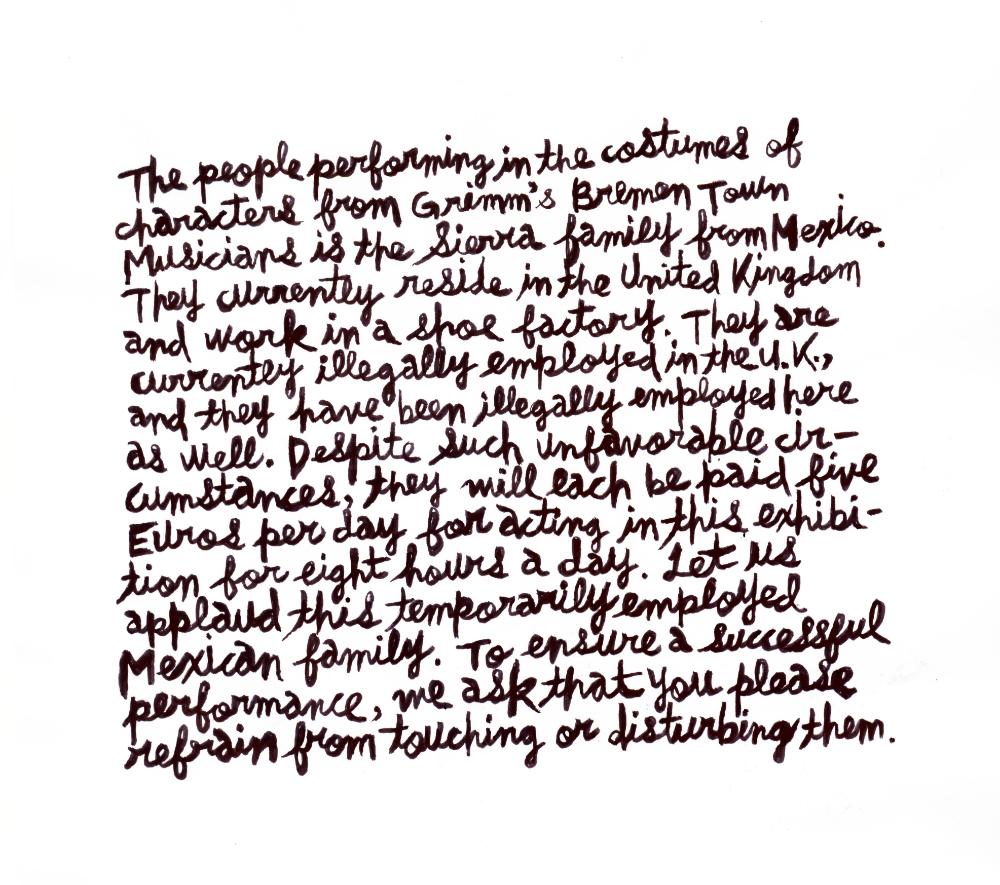 The people performing in the costumes of
characters from Grimm's Bremen Town
Musicians is the Sierra family from Mexico.
They currently reside in the United Kingdom
and work in a shoe factory. They are
currently illegally employed in the U.K.,
and they have been illegally employed here
as well. Despite such unfavorable cir-
cumstances, they will each be paid five
Euros per day for acting in this exhibi-
tion for eight hours a day. Let us
applaud this temporarily employed
Mexican family. To ensure a successful
performance, we ask that you please
refrain from touching or disturbing them.